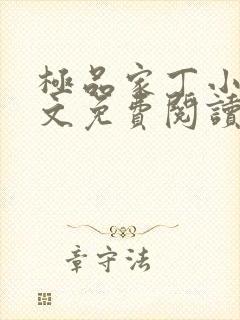 極品家丁小
文免費閱讀
章守法